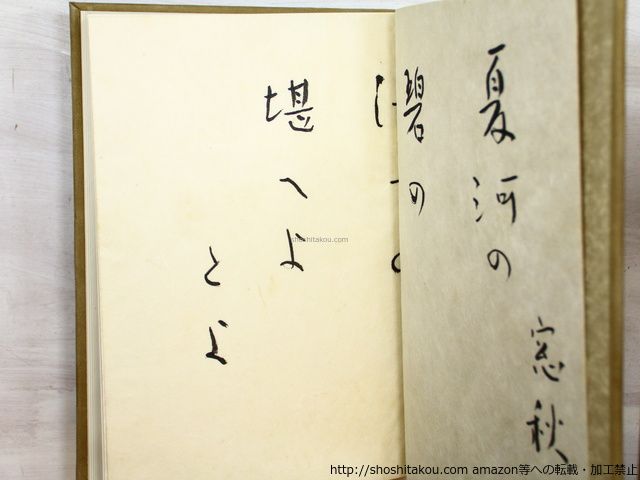 夏河の
碧の
堪へよ
とよ
窓秋
shoshitakou.com
http://shoshitakou.com amazon等への転載・加工禁止